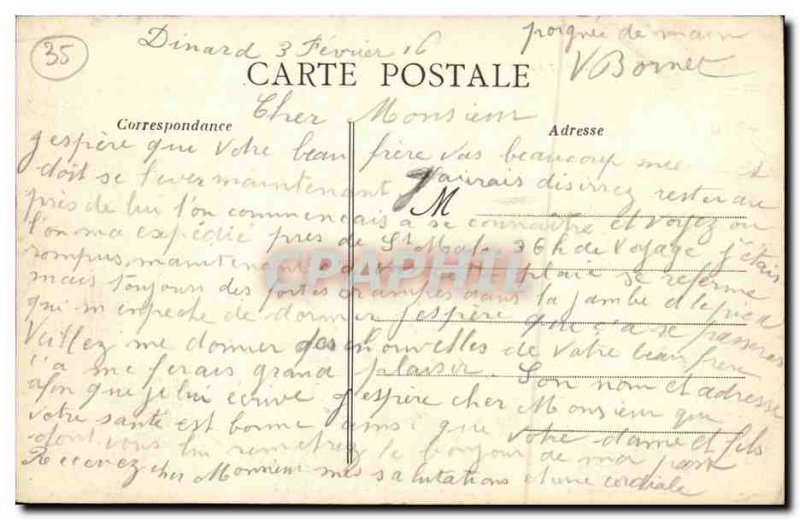 35
Dinard 3 Février 16
poignée de main
VBornet
CARTE POSTALE
Cher Monsieur
Correspondance
Adresse
J'espère que Votre beau frère vas beaucoup
doit se lever maintenant J'aurais disirrez rester au
M
près de lui l'on commencais a se connaitre et voyez ou
l'on ma expédié près de St Malo 36 h de Voyage j'étais
rompus, maintenant plaie se referme
CPAPHIL
mais toujours des fortes crampes dans la jambe et le pied
qui m'enpeche de dormir j'espère que ça se passeras
Veillez me donner des nouvelles de Votre beau frère
ç'a me ferais grand plaisir. Son nom et adresse
afin que je lui écrive J'espère cher Monsieur que
votre santé est bonne ainsi que votre dame et fils
dont vous lui remettrez le bonjour de ma part
Recevez cher Monsieur mes salutations et une cordiale